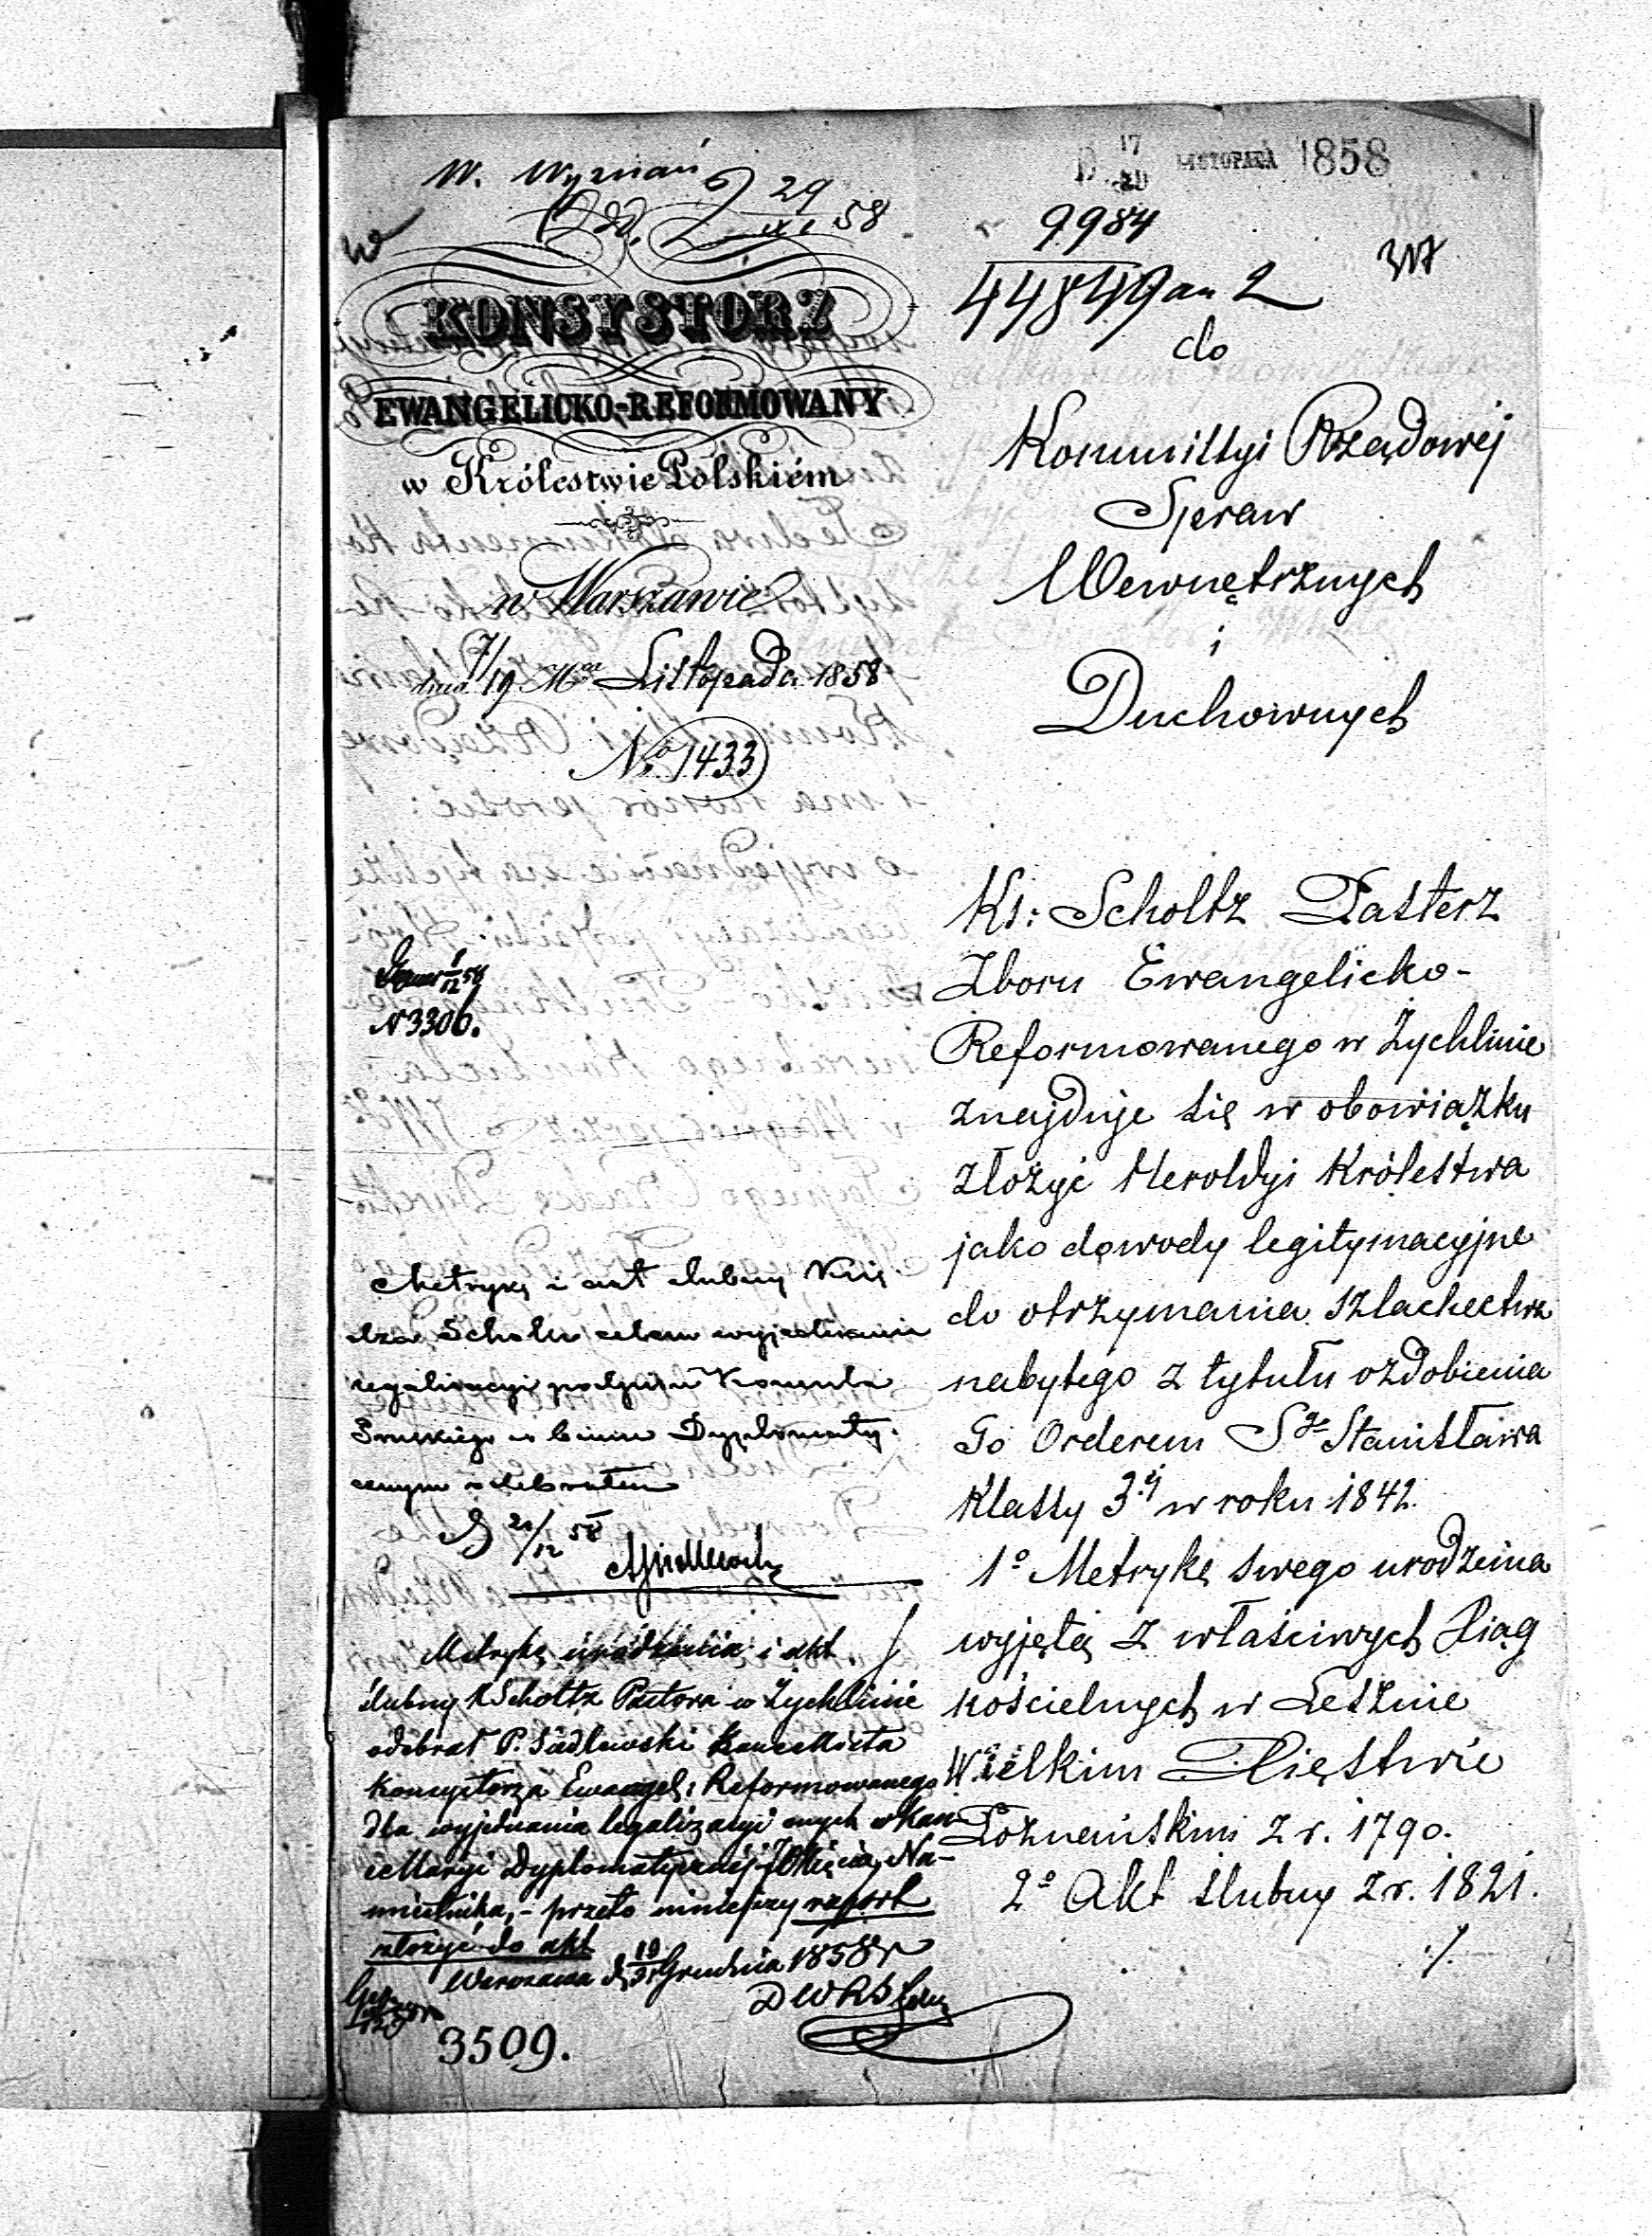 W. Wyznań
29/XI 58
W
KONSYSTORZ
EWANGELICKO-REFORMOWANY
w Królestwie Polskiém
w Warszawie
dnia 7/19 Mca Listopada 1858
No 1433
D. 17 LISTOPADA 1858
9984
44849 an 2
317
do
Kommissyi Rządowej
Spraw
Wewnętrznych
i
Duchownych
Ks: Scholtz Pasterz
Zboru Ewangelicko-
Reformowanego w Żychlinie
znajduje się w obowiązku
złożyć Heroldyi Królestwa
jako dowody legitymacyjne
do otrzymania szlachectwa
nabytego z tytułu ozdobienia
Go Orderem Sgo Stanisława
Klassy 3ej w roku 1842.
1o Metrykę swego urodzenia
wyjętą z właściwych Xiąg
kościelnych w Lesznie
Wielkim Xięstwie
Poznańskim z r. 1790.
2o Akt ślubny z r. 1821.
./.
N 3306.
Metrykę i akt ślubny Xię-
dza Scholtz celem wyjednania
legalizacyi podpisu Konsula
Pruskiego w biurze Dyplomaty-
cznym odebrałem
D 20/12 58
Metrykę urodzenia i akt
ślubny X Scholtz Pastora w Żychlinie
odebrał P. Siedlewski Kancellista
Konsystorza Ewangel: Reformowanego
dla wyjednania legalizacyi onych w Kan-
cellaryi Dyplomatycznej JO Xięcia Na-
miestnika, - przeto niniejszy raport
złożyć do akt
Warszawa d. 19/31 Grudnia 1858 r
3509.